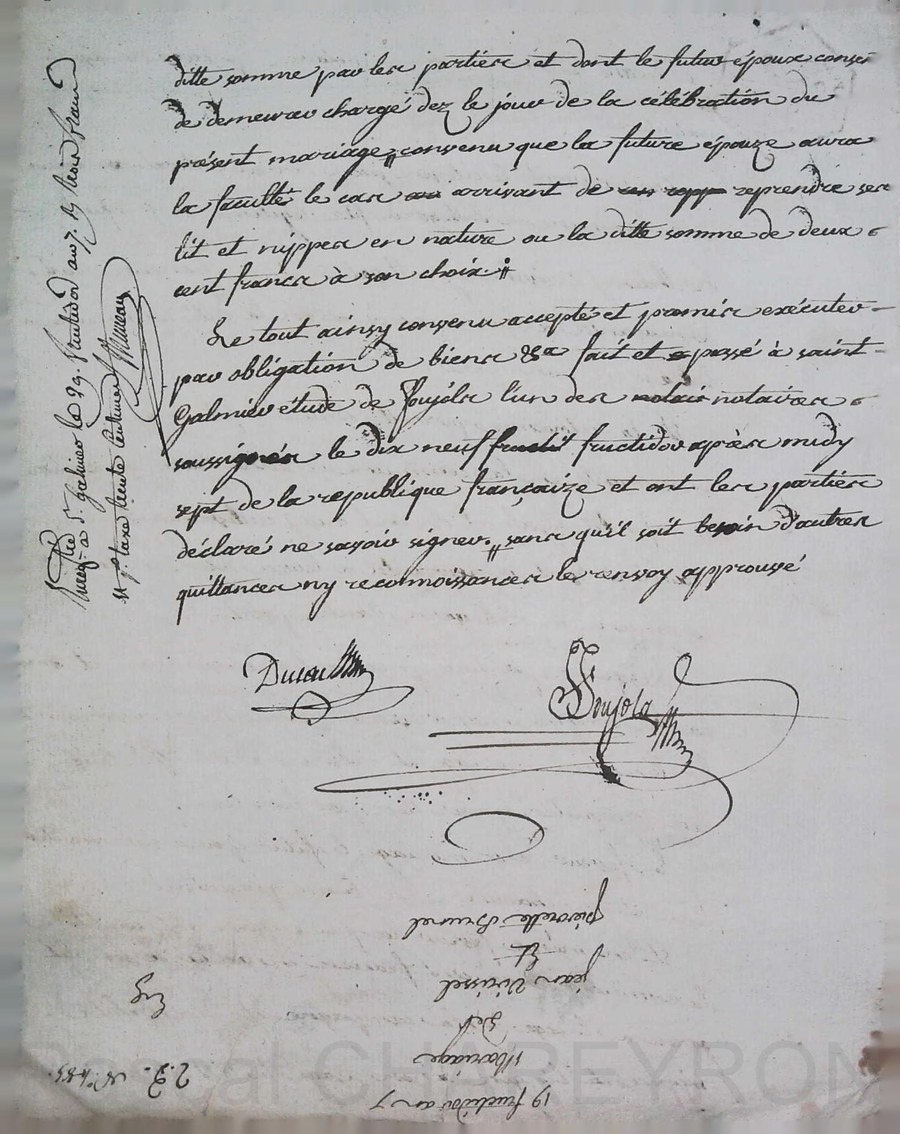 ditte somme par les parties et dont le futur époux consent
de demeurer chargé dez le jour de la célébration du
présent mariage, convenu que la future épouze aura
la faculté le cas arrivant de reprendre ses
lit et nippes en nature ou la ditte somme de deux
cent francs à son choix
Le tout ainsy convenu accepté et promis exécuter
par obligation de biens &a fait et passé à saint
Galmier étude de Soujola l'un des notaires
soussignés le dix neuf fructidor après midy
sept de la republique françaize et ont les parties
déclaré ne savoir signer. sans qu'il soit besoin d'autres
quittances ny reconnoissances le renvoy approuvé
Soujola
St. galmier le 29. fructidor an 7.
trente centimes
19 fructidor an 7
Mariage
De
jean Virissel
Et
pierrette Brunel
Exp
Pascal CHAREYRON